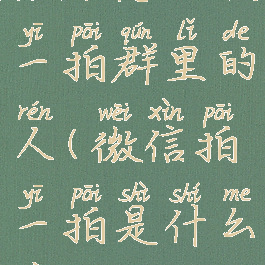 yī pāi qún lǐ de
一拍群里的
rén wēi xìn pāi
人(微信拍
yī pāi shì shí me
一拍是什么